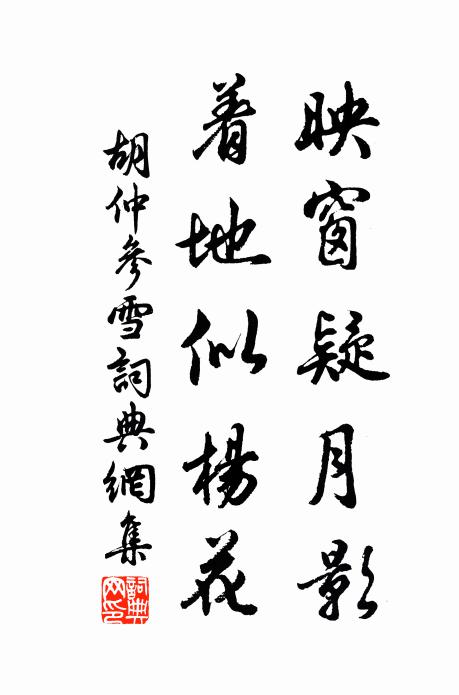 映窗疑月影
着地似楊花
胡仲參雪詞典網集
詞典